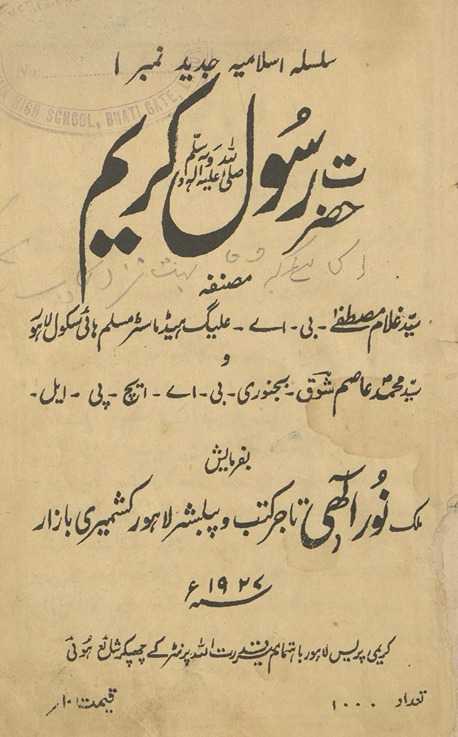 سلسلہ اسلامیہ جدید نمبر ۱
HIGH SCHOOL, BHATI GATE,
حضرت رسول کریم
صلی اللہ علیہ وآلہ وسلم
مصنفہ
سید غلام مصطفےٰ - بی - اے - علیگ ہیڈ ماسٹر مسلم ہائی سکول لاہور
و
سید محمد عاصم شوق - بجنوری - بی - اے - ایچ - پی - ایل -
بفرمایش
ملک نور الٰہی تاجر کتب و پبلشر لاہور کشمیری بازار
سنہ ۱۹۲۷ ء
کریمی پریس لاہور باہتمام میر قدرت اللہ پرنٹر کے چھپکر شائع ہوئی
تعداد ۱۰۰۰ قیمت ۱۰ر